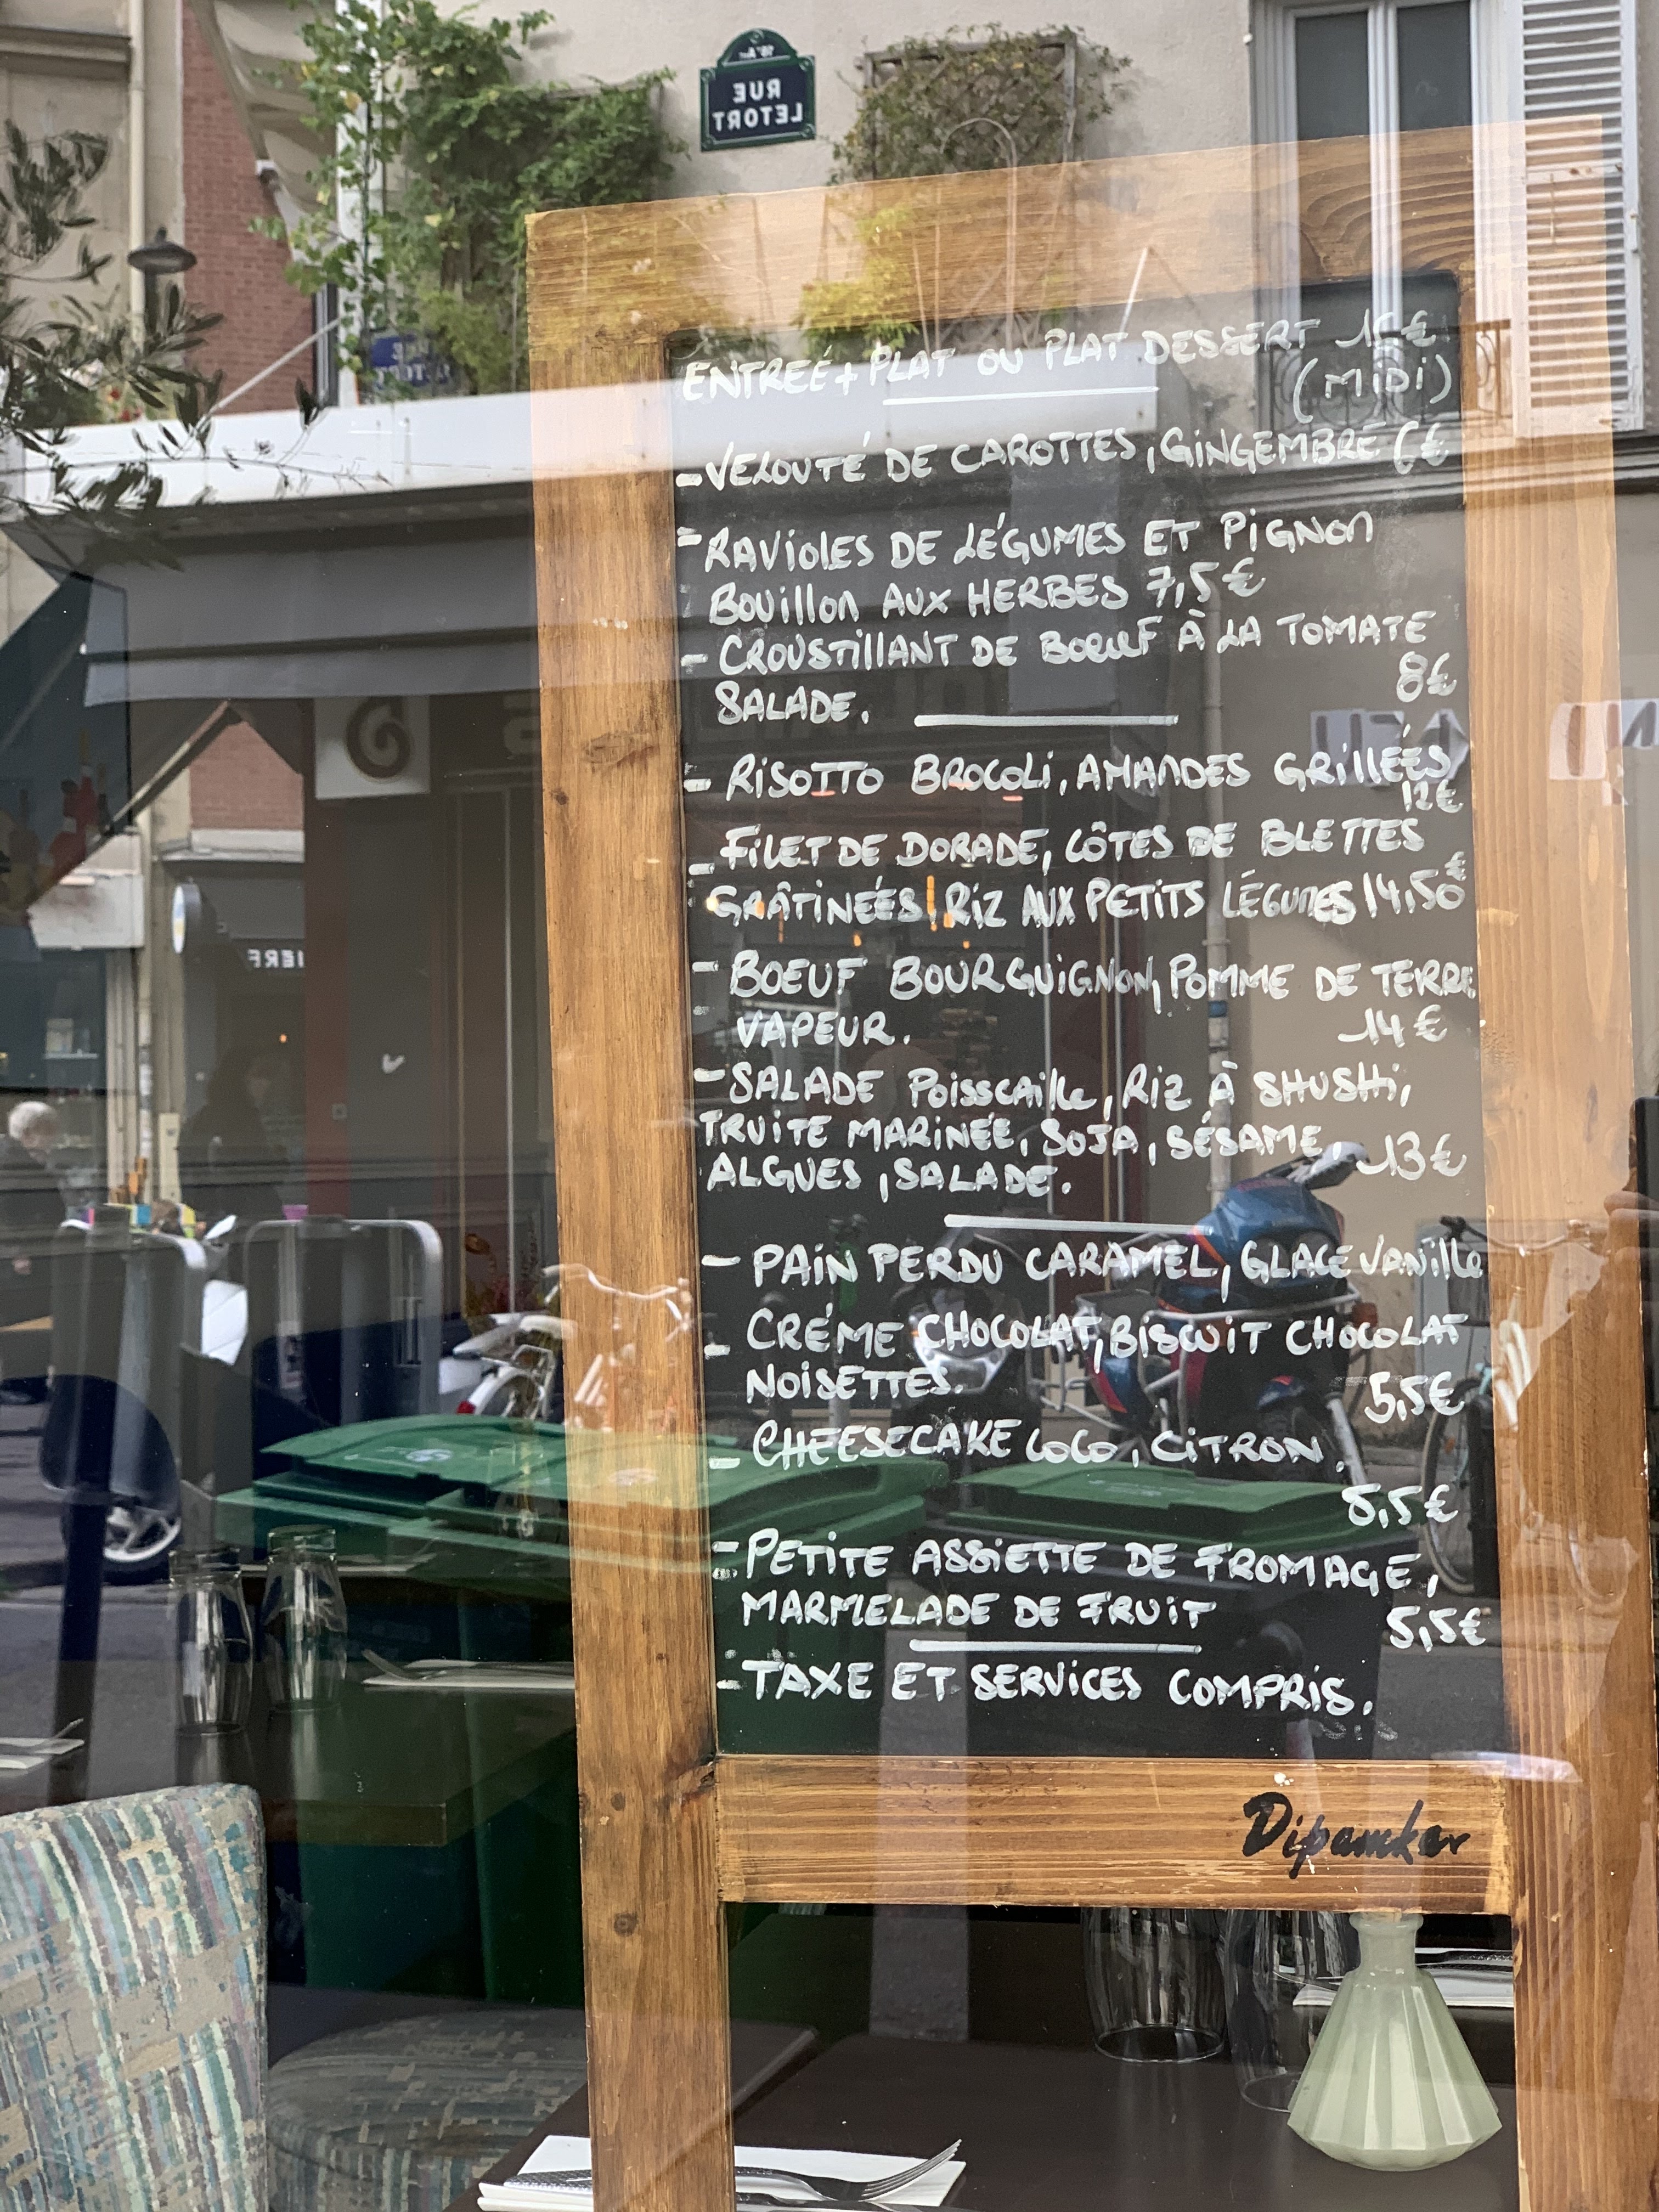 18e Arr
RUE
LETORT
RUE
ENTREÉ + PLAT OU PLAT DESSERT €
(MIDI)
- VELOUTÉ DE CAROTTES, GINGEMBRE 6€
- RAVIOLES DE LÉGUMES ET PIGNON
BOUILLON AUX HERBES 7,5€
- CROUSTILLANT DE BOEUF À LA TOMATE
8€
SALADE.
- RISOTTO BROCOLI, AMANDES GRILLEÉS
12€
- FILET DE DORADE, CÔTES DE BLETTES
GRÂTINEÉS, RIZ AUX PETITS LÉGUMES 14,50€
- BOEUF BOURGUIGNON, POMME DE TERRE
VAPEUR. 14€
- SALADE POISSCAILLE, RIZ À SHUSHI,
TRUITE MARINEÉ, SOJA, SÉSAME,
ALGUES, SALADE. 13€
- PAIN PERDU CARAMEL, GLACE VANILLE
- CRÉME CHOCOLAT, BISCUIT CHOCOLAT
NOISETTES. 5,5€
- CHEESECAKE COCO, CITRON.
5,5€
- PETITE ASSIETTE DE FROMAGE,
MARMELADE DE FRUIT 5,5€
- TAXE ET SERVICES COMPRIS.
Dipamkar